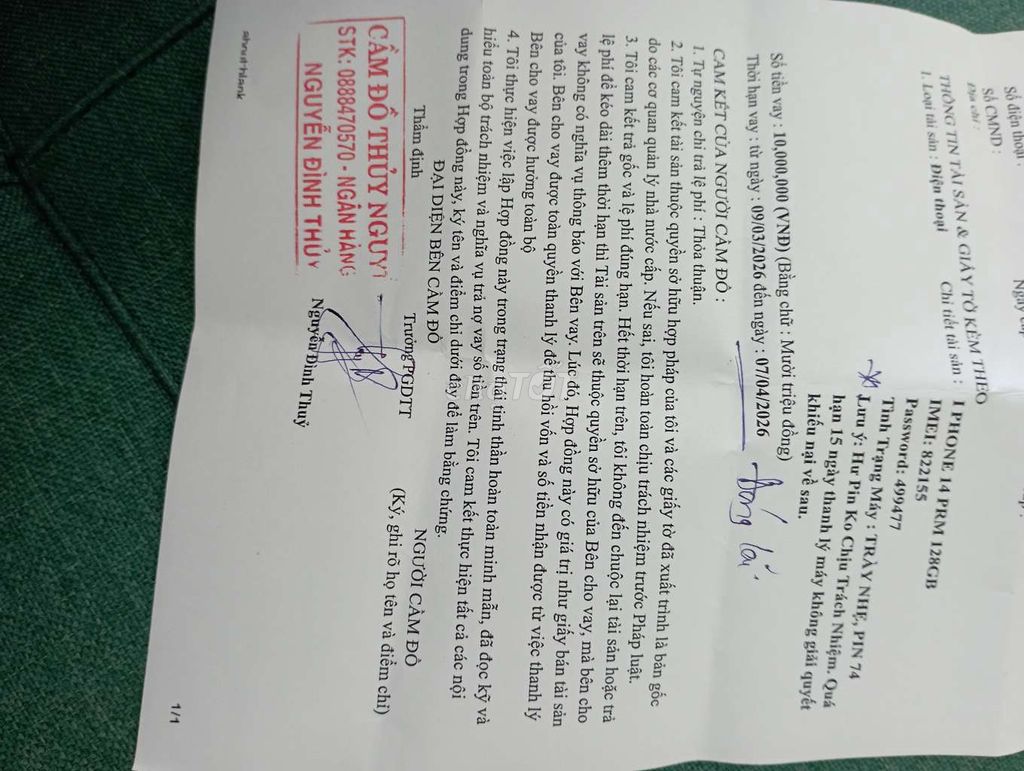 Số điện thoại :
Số CMND :
Địa chỉ :
THÔNG TIN TÀI SẢN & GIẤY TỜ KÈM THEO
1. Loại tài sản : Điện thoại
Chi tiết tài sản : I PHONE 14 PRM 128GB
IMEI: 822155
Password: 499477
Tình Trạng Máy : TRÀY NHẸ, PIN 74
Lưu ý: Hư Pin Ko Chịu Trách Nhiệm. Quá
hạn 15 ngày thanh lý máy không giải quyết
khiếu nại về sau.
Số tiền vay : 10,000,000 (VNĐ) (Bằng chữ : Mười triệu đồng)
Thời hạn vay : từ ngày : 09/03/2026 đến ngày : 07/04/2026
Đóng lãi
CAM KẾT CỦA NGƯỜI CẦM ĐỒ :
1. Tự nguyện chi trả lệ phí : Thỏa thuận.
2. Tôi cam kết tài sản thuộc quyền sở hữu hợp pháp của tôi và các giấy tờ đã xuất trình là bản gốc
do các cơ quan quản lý nhà nước cấp. Nếu sai, tôi hoàn toàn chịu trách nhiệm trước Pháp luật.
3. Tôi cam kết trả gốc và lệ phí đúng hạn. Hết thời hạn trên, tôi không đến chuộc lại tài sản hoặc trả
lệ phí để kéo dài thêm thời hạn thì Tài sản trên sẽ thuộc quyền sở hữu của Bên cho vay, mà bên cho
vay không có nghĩa vụ thông báo với Bên vay. Lúc đó, Hợp đồng này có giá trị như giấy bán tài sản
của tôi. Bên cho vay được toàn quyền thanh lý để thu hồi vốn và số tiền nhận được từ việc thanh lý
Bên cho vay được hưởng toàn bộ
4. Tôi thực hiện việc lập Hợp đồng này trong trạng thái tinh thần hoàn toàn minh mẫn, đã đọc kỹ và
hiểu toàn bộ trách nhiệm và nghĩa vụ trả nợ vay số tiền trên. Tôi cam kết thực hiện tất cả các nội
dung trong Hợp đồng này, ký tên và điểm chỉ dưới đây để làm bằng chứng.
ĐẠI DIỆN BÊN CẦM ĐỒ
NGƯỜI CẦM ĐỒ
Thẩm định
Trưởng PGDTT
(Ký, ghi rõ họ tên và điểm chỉ)
CẦM ĐỒ THỦY NGUY
STK: 0888470570 - NGÂN HÀNG
NGUYỄN ĐÌNH THỦY
Nguyễn Đình Thuỷ
1/1